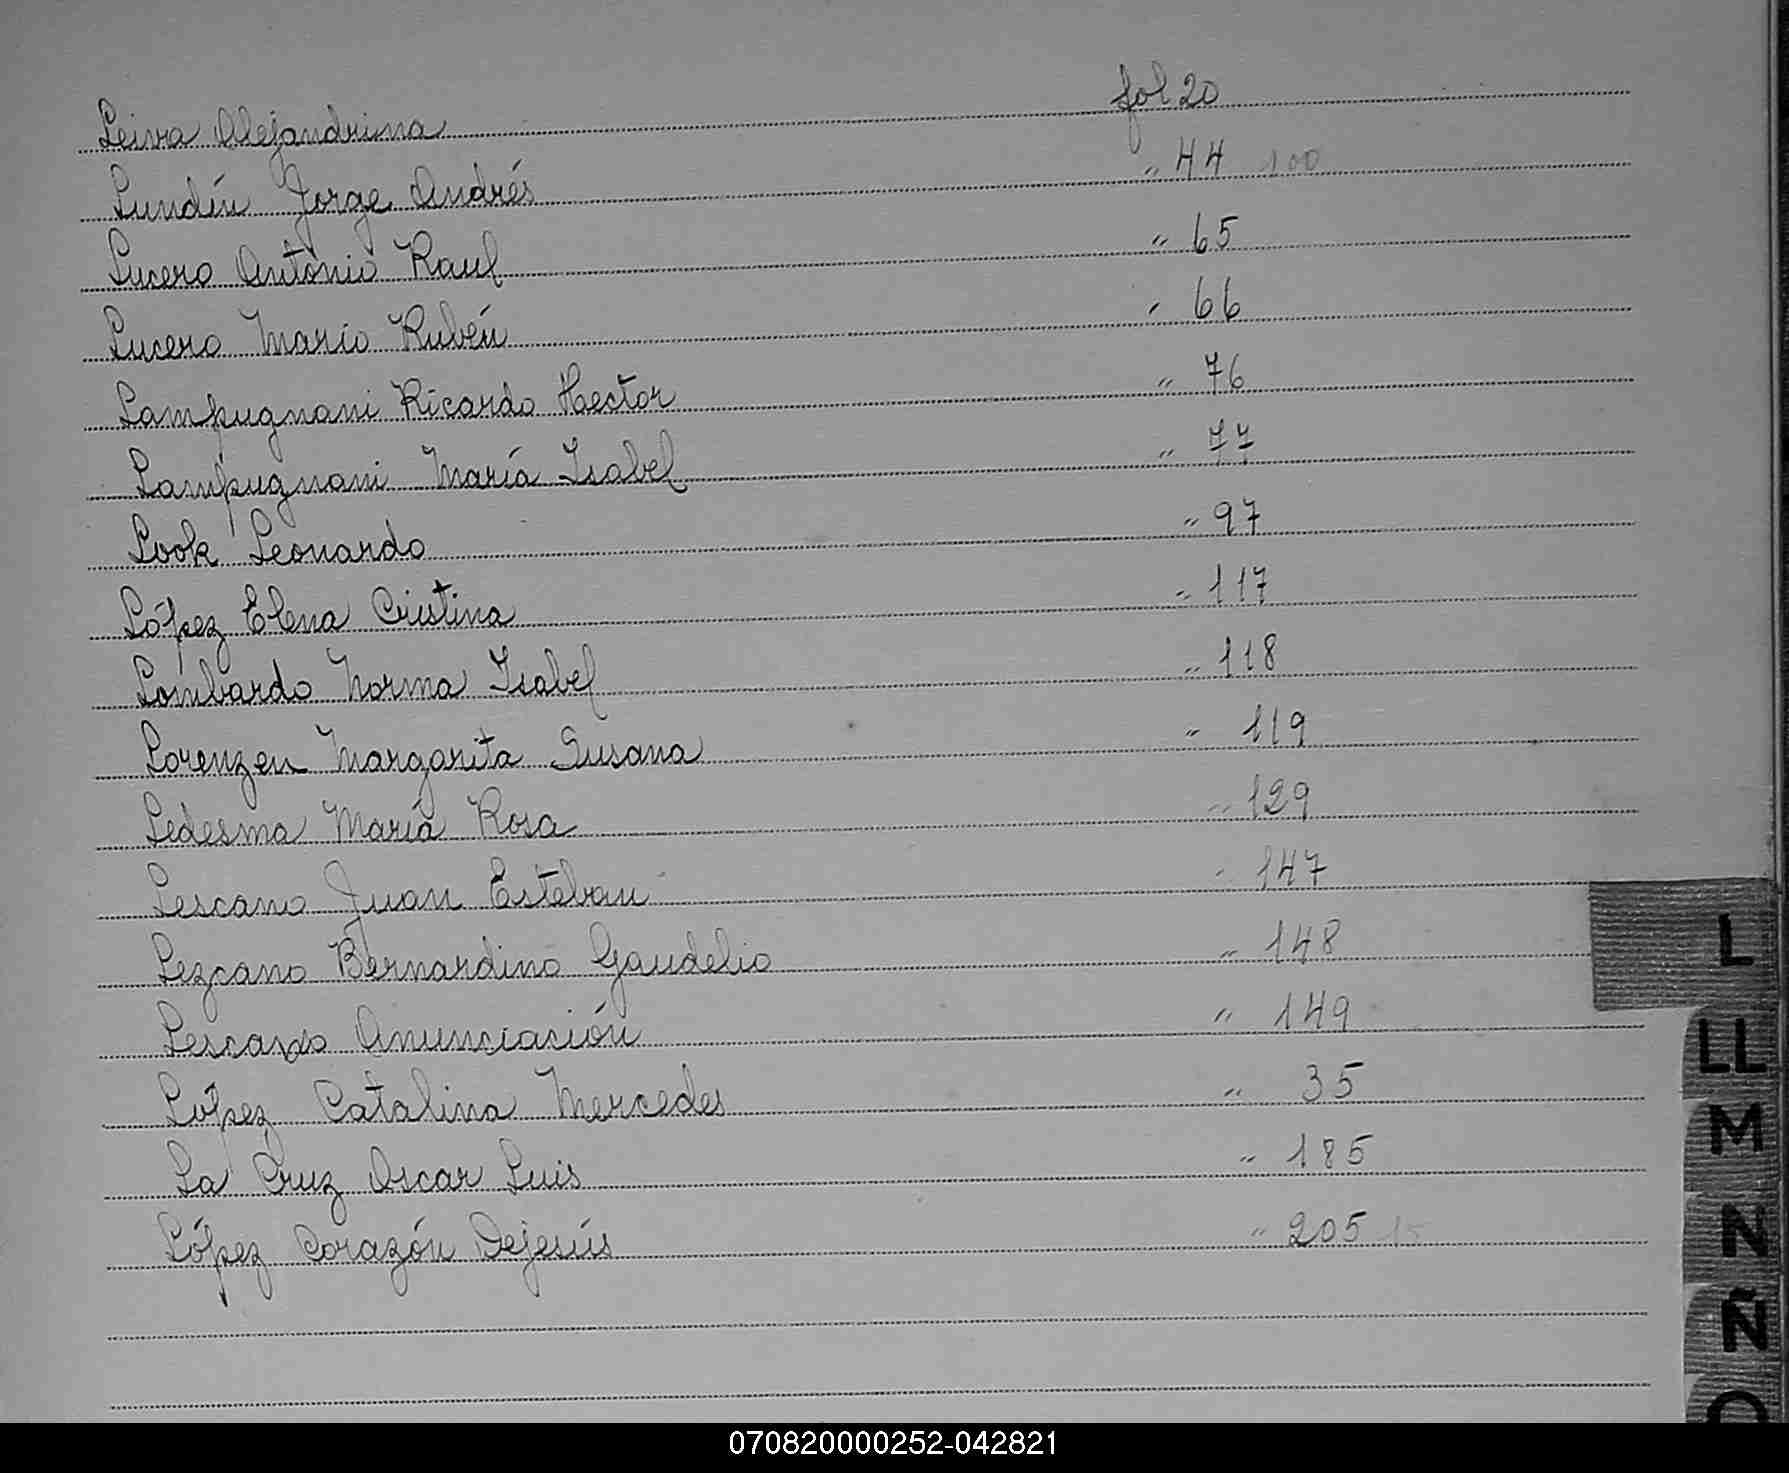 Leiva Alejandrina fol 20
Lundín Jorge Andrés " 44 100
Lucero Antonio Raul " 65
Lucero Mario Rubén " 66
Lampugnani Ricardo Hector " 76
Lampugnani María Isabel " 77
Look Leonardo " 97
López Elena Cristina " 117
Lombardo Norma Isabel " 118
Lorenzen Margarita Susana " 119
Ledesma María Rosa " 129
Lescano Juan Esteban " 147
Lezcano Bernardino Gaudelio " 148
Lescano Anunciación " 149
López Catalina Mercedes " 35
La Cruz Oscar Luis " 185
López Corazón Dejesús " 205 15
L
LL
M
N
Ñ
O
070820000252-042821